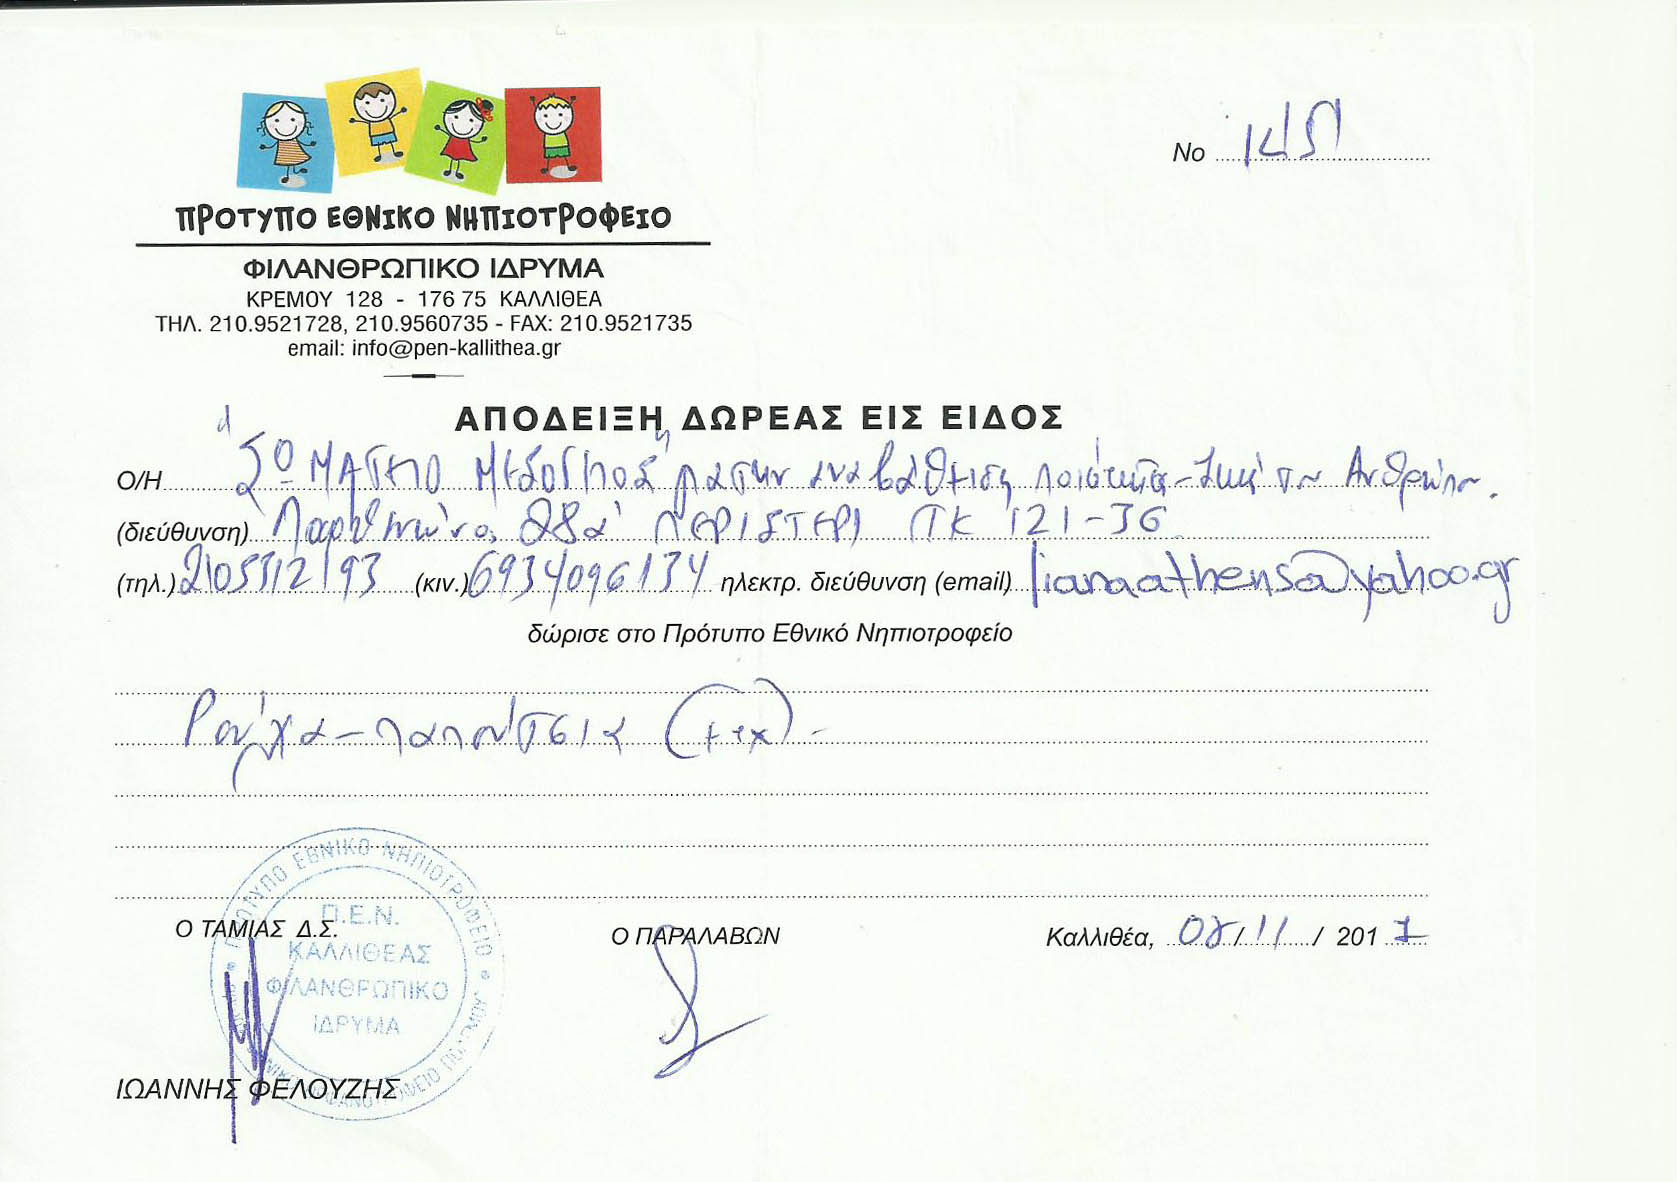 ΠΡΟΤΥΠΟ ΕΘΝΙΚΟ ΝΗΠΙΟΤΡΟΦΕΙΟ
ΦΙΛΑΝΘΡΩΠΙΚΟ ΙΔΡΥΜΑ
ΚΡΕΜΟΥ 128 - 176 75 ΚΑΛΛΙΘΕΑ
ΤΗΛ. 210.9521728, 210.9560735 - FAX: 210.9521735
email: info@pen-kallithea.gr
No
ΑΠΟΔΕΙΞΗ ΔΩΡΕΑΣ ΕΙΣ ΕΙΔΟΣ
Ο/Η Αναβάθμιση Ανθρώπων.
(διεύθυνση) 28α ΠΕΡΙΣΤΕΡΙ ΤΚ 121-36
(τηλ.) 2105312193 (κιν.) 6934096134 ηλεκτρ. διεύθυνση (email) lianaathens@yahoo.gr
δώρισε στο Πρότυπο Εθνικό Νηπιοτροφείο
Ρούχα - παπούτσια (τεχ) -
Ο ΤΑΜΙΑΣ Δ.Σ.
Ο ΠΑΡΑΛΑΒΩΝ
Καλλιθέα, 08/11/2017
ΠΡΟΤΥΠΟ ΕΘΝΙΚΟ ΝΗΠΙΟΤΡΟΦΕΙΟ
Π.Ε.Ν.
ΚΑΛΛΙΘΕΑΣ
ΦΙΛΑΝΘΡΩΠΙΚΟ
ΙΔΡΥΜΑ
ΙΩΑΝΝΗΣ ΦΕΛΟΥΖΗΣ